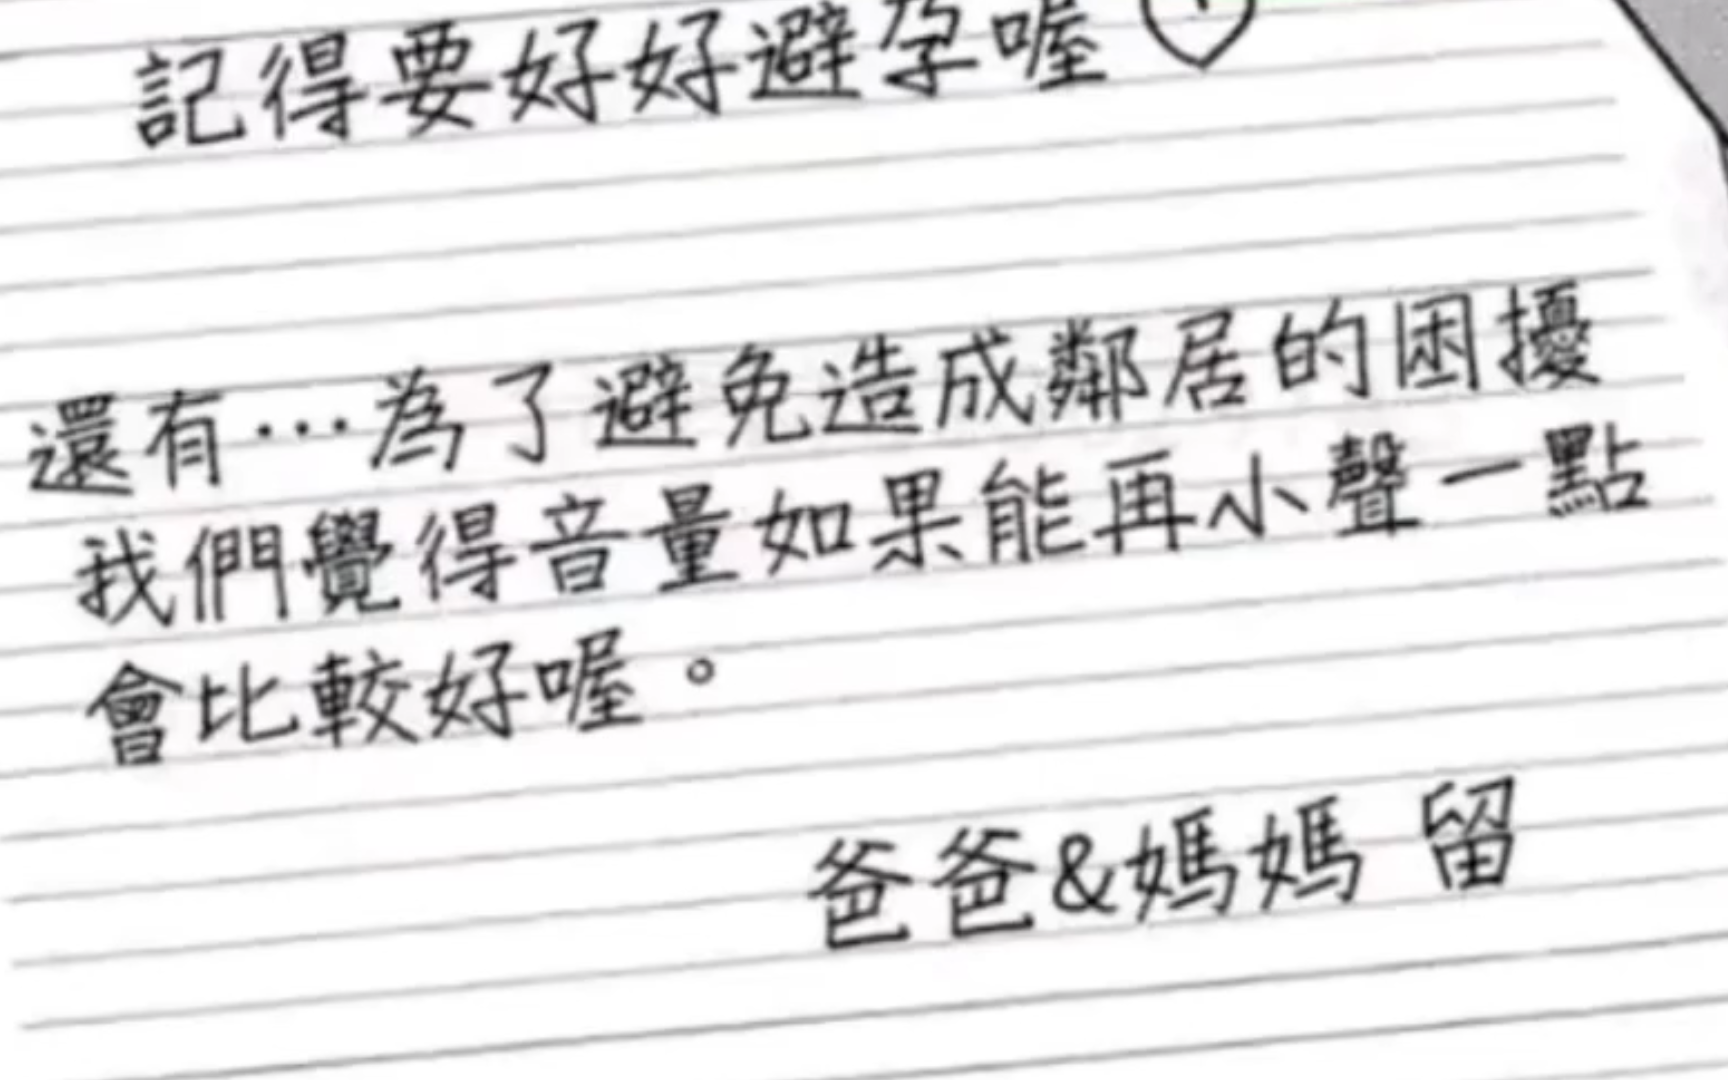 記得要好好避孕喔♡
還有…為了避免造成鄰居的困擾
我們覺得音量如果能再小聲一點
會比較好喔。
爸爸&媽媽 留